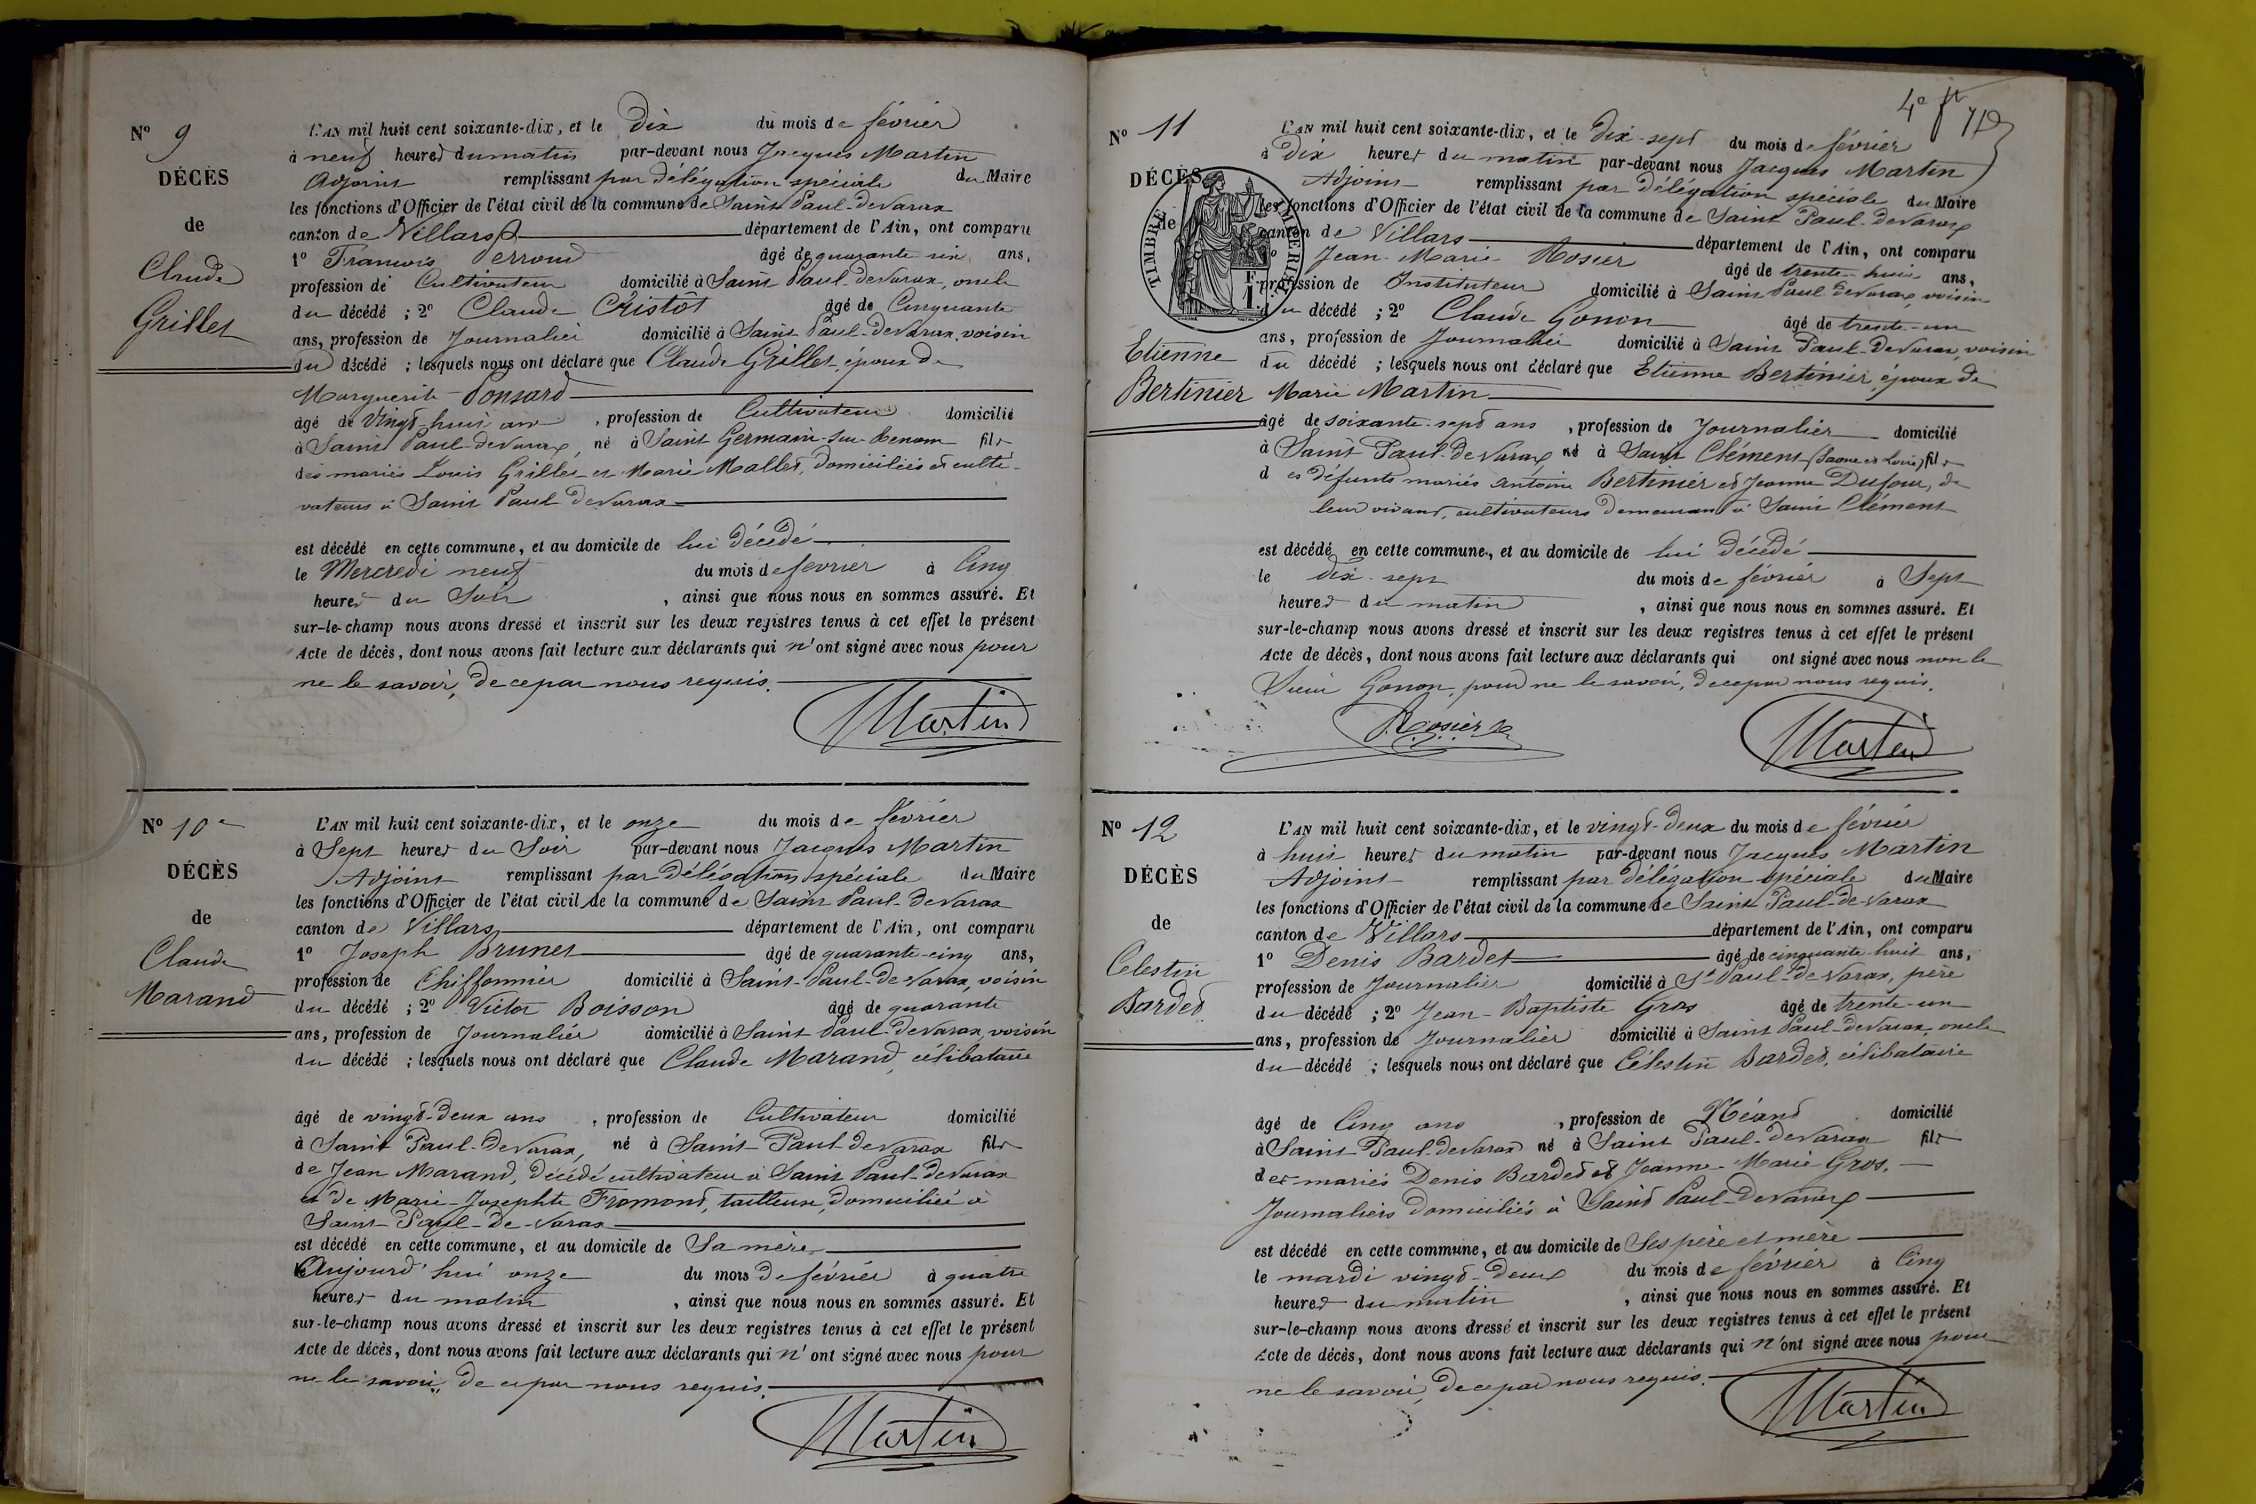 Nº 9
DÉCÈS
de
Claude
Grillet
L'AN mil huit cent soixante-dix, et le Dix du mois de février
à neuf heures du matin par-devant nous Jacques Martin
Adjoint remplissant par délégation spéciale du Maire
les fonctions d'Officier de l'état civil de la commune de Saint Paul-de Varax
canton de Villars département de l'Ain, ont comparu
1º François Perroud âgé de quarante six ans,
profession de Cultivateur domicilié à Saint Paul-de Varax, oncle
du décédé ; 2º Claude Cristôt âgé de Cinquante
ans, profession de Journalier domicilié à Saint-Paul-de Varax, voisin
du décédé ; lesquels nous ont déclaré que Claude Grillet, époux de
Marguerite Ponsard
âgé de Vingt-huit ans, profession de Cultivateur domicilié
à Saint Paul-de Varax, né à Saint Germain-sur-Renom fils
des mariés Louis Grillet et Marie Mallet, domiciliés et culti-
vateurs à Saint Paul de Varax
est décédé en cette commune, et au domicile de lui décédé
le Mercredi neuf du mois de février à Cinq
heures du Soir, ainsi que nous nous en sommes assuré. Et
sur-le-champ nous avons dressé et inscrit sur les deux registres tenus à cet effet le présent
Acte de décès, dont nous avons fait lecture aux déclarants qui n'ont signé avec nous pour
ne le savoir, de ce par nous requis.
Martin
Nº 10
DÉCÈS
de
Claude
Marand
L'AN mil huit cent soixante-dix, et le onze du mois de février
à Sept heures du Soir par-devant nous Jacques Martin
Adjoint remplissant par délégation spéciale du Maire
les fonctions d'Officier de l'état civil de la commune de Saint Paul-de Varax
canton de Villars département de l'Ain, ont comparu
1º Joseph Brunet âgé de quarante-cinq ans,
profession de Chiffonnier domicilié à Saint-Paul-de-Varax, voisin
du décédé ; 2º Victor Boisson âgé de quarante
ans, profession de Journalier domicilié à Saint Paul-de Varax, voisin
du décédé ; lesquels nous ont déclaré que Claude Marand, célibataire
âgé de vingt-deux ans, profession de Cultivateur domicilié
à Saint Paul-de Varax, né à Saint-Paul-de Varax fils
de Jean Marand, décédé cultivateur à Saint Paul-de Varax
et de Marie-Josephte Fromont, tailleuse, domiciliée à
Saint-Paul-de-Varax
est décédé en cette commune, et au domicile de Sa mère
Aujourd'hui onze du mois de février à quatre
heures du matin, ainsi que nous nous en sommes assuré. Et
sur-le-champ nous avons dressé et inscrit sur les deux registres tenus à cet effet le présent
Acte de décès, dont nous avons fait lecture aux déclarants qui n'ont signé avec nous pour
ne le savoir, de ce par nous requis.
Martin
4e
Nº 11
DÉCÈS
de
TIMBRE IMPERIAL
F.
1.
Etienne
Bertinier
L'AN mil huit cent soixante-dix, et le dix-sept du mois de février
à Dix heures du matin par-devant nous Jacques Martin
Adjoint remplissant par délégation spéciale du Maire
les fonctions d'Officier de l'état civil de la commune de Saint Paul-de Varax
canton de Villars département de l'Ain, ont comparu
1º Jean-Marie Rosier âgé de trente-huit ans,
profession de Instituteur domicilié à Saint Paul de Varax, voisin
du décédé ; 2º Claude Gonon âgé de trente-un
ans, profession de Journalier domicilié à Saint Paul-de Varax, voisin
du décédé ; lesquels nous ont déclaré que Etienne Bertinier, époux de
Marie Martin
âgé de soixante-sept ans, profession de Journalier domicilié
à Saint Paul-de Varax né à Saint Clément (Saone et Loire) fils
des défunts mariés Antoine Bertinier et Jeanne Dufour, de
leur vivant, cultivateurs demeurant à Saint Clément
est décédé en cette commune, et au domicile de lui décédé
le dix-sept du mois de février à Sept
heures du matin, ainsi que nous nous en sommes assuré. Et
sur-le-champ nous avons dressé et inscrit sur les deux registres tenus à cet effet le présent
Acte de décès, dont nous avons fait lecture aux déclarants qui ont signé avec nous non le
Sieur Gonon, pour ne le savoir, de ce par nous requis.
Rosier
Martin
Nº 12
DÉCÈS
de
Celestin
Bardet
L'AN mil huit cent soixante-dix, et le vingt-deux du mois de février
à huit heures du matin par-devant nous Jacques Martin
Adjoint remplissant par délégation spéciale du Maire
les fonctions d'Officier de l'état civil de la commune de Saint Paul-de-Varax
canton de Villars département de l'Ain, ont comparu
1º Denis Bardet âgé de cinquante-huit ans,
profession de Journalier domicilié à St Paul-de Varax, père
du décédé ; 2º Jean-Baptiste Gros âgé de trente-un
ans, profession de Journalier domicilié à Saint Paul-de Varax, oncle
du décédé ; lesquels nous ont déclaré que Célestin Bardet, célibataire
âgé de Cinq ans, profession de Néant domicilié
à Saint-Paul-de Varax né à Saint Paul-de Varax fils
des mariés Denis Bardet et Jeanne-Marie Gros,
Journaliers domiciliés à Saint Paul-de Varax
est décédé en cette commune, et au domicile de Ses père et mère
le mardi vingt-deux du mois de février à Cinq
heures du matin, ainsi que nous nous en sommes assuré. Et
sur-le-champ nous avons dressé et inscrit sur les deux registres tenus à cet effet le présent
Acte de décès, dont nous avons fait lecture aux déclarants qui n'ont signé avec nous pour
ne le savoir, de ce par nous requis.
Martin